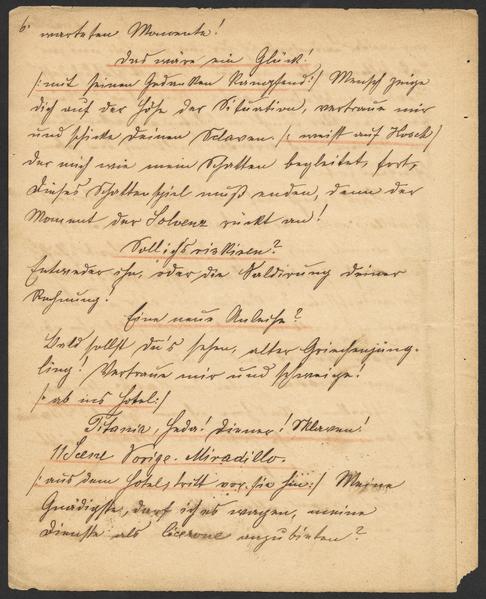 6.
warteten Momente!
Das wäre ein Glück!
/:mit seinen Gedanken kämpfend:/ Mensch zeige
dich auf der Höhe der Situation, vertraue mir
und schicke deinen Sclaven. /: weist auf Hosek/
der mich wie mein Schatten begleitet, fort,
dieses Schattenspiel muß enden, denn der
Moment der Solvenz rückt an!
Soll ichs riskiren?
Entweder ihn, oder die Saldirung deiner
Rechnung!
Eine neue Anleihe?
Bald sollst du's sehen, alter Griechenjüng-
ling! Vertraue mir und schweige!
/: ab ins Hotel:/
Titania, heda! Diener! Sklaven!
11 Scene Vorige. Miradillo.
/: aus dem Hotel, tritt vor sie hin:/ Meine
Gnädigste, darf ich es wagen, meine
Dienste als Cicerone anzubieten?